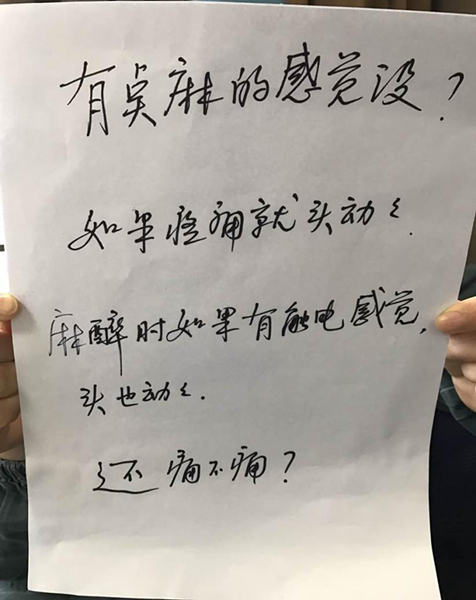 有点麻的感觉没？
如果疼痛就头动々.
麻醉时如果有触电感觉,
头也动々.
还痛不痛？